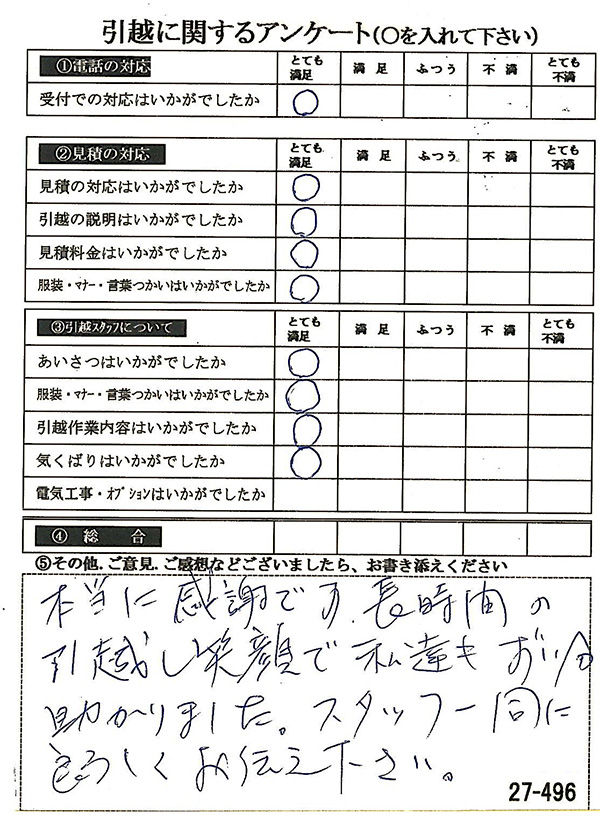 引越に関するアンケート(〇を入れて下さい)
①電話の対応 とても満足 満足 ふつう 不満 とても不満
受付での対応はいかがでしたか 〇
②見積の対応 とても満足 満足 ふつう 不満 とても不満
見積の対応はいかがでしたか 〇
引越の説明はいかがでしたか 〇
見積料金はいかがでしたか 〇
服装・マナー・言葉つかいはいかがでしたか 〇
③引越スタッフについて とても満足 満足 ふつう 不満 とても不満
あいさつはいかがでしたか 〇
服装・マナー・言葉つかいはいかがでしたか 〇
引越作業内容はいかがでしたか 〇
気くばりはいかがでしたか 〇
電気工事・オプションはいかがでしたか
④ 総 合
⑤その他.ご意見.ご感想などございましたら、お書き添えください
本当に感謝です.長時間の
引越し笑顔で私達も
助かりました。スタッフ一同に
よろしくお伝え下さい。
27-496